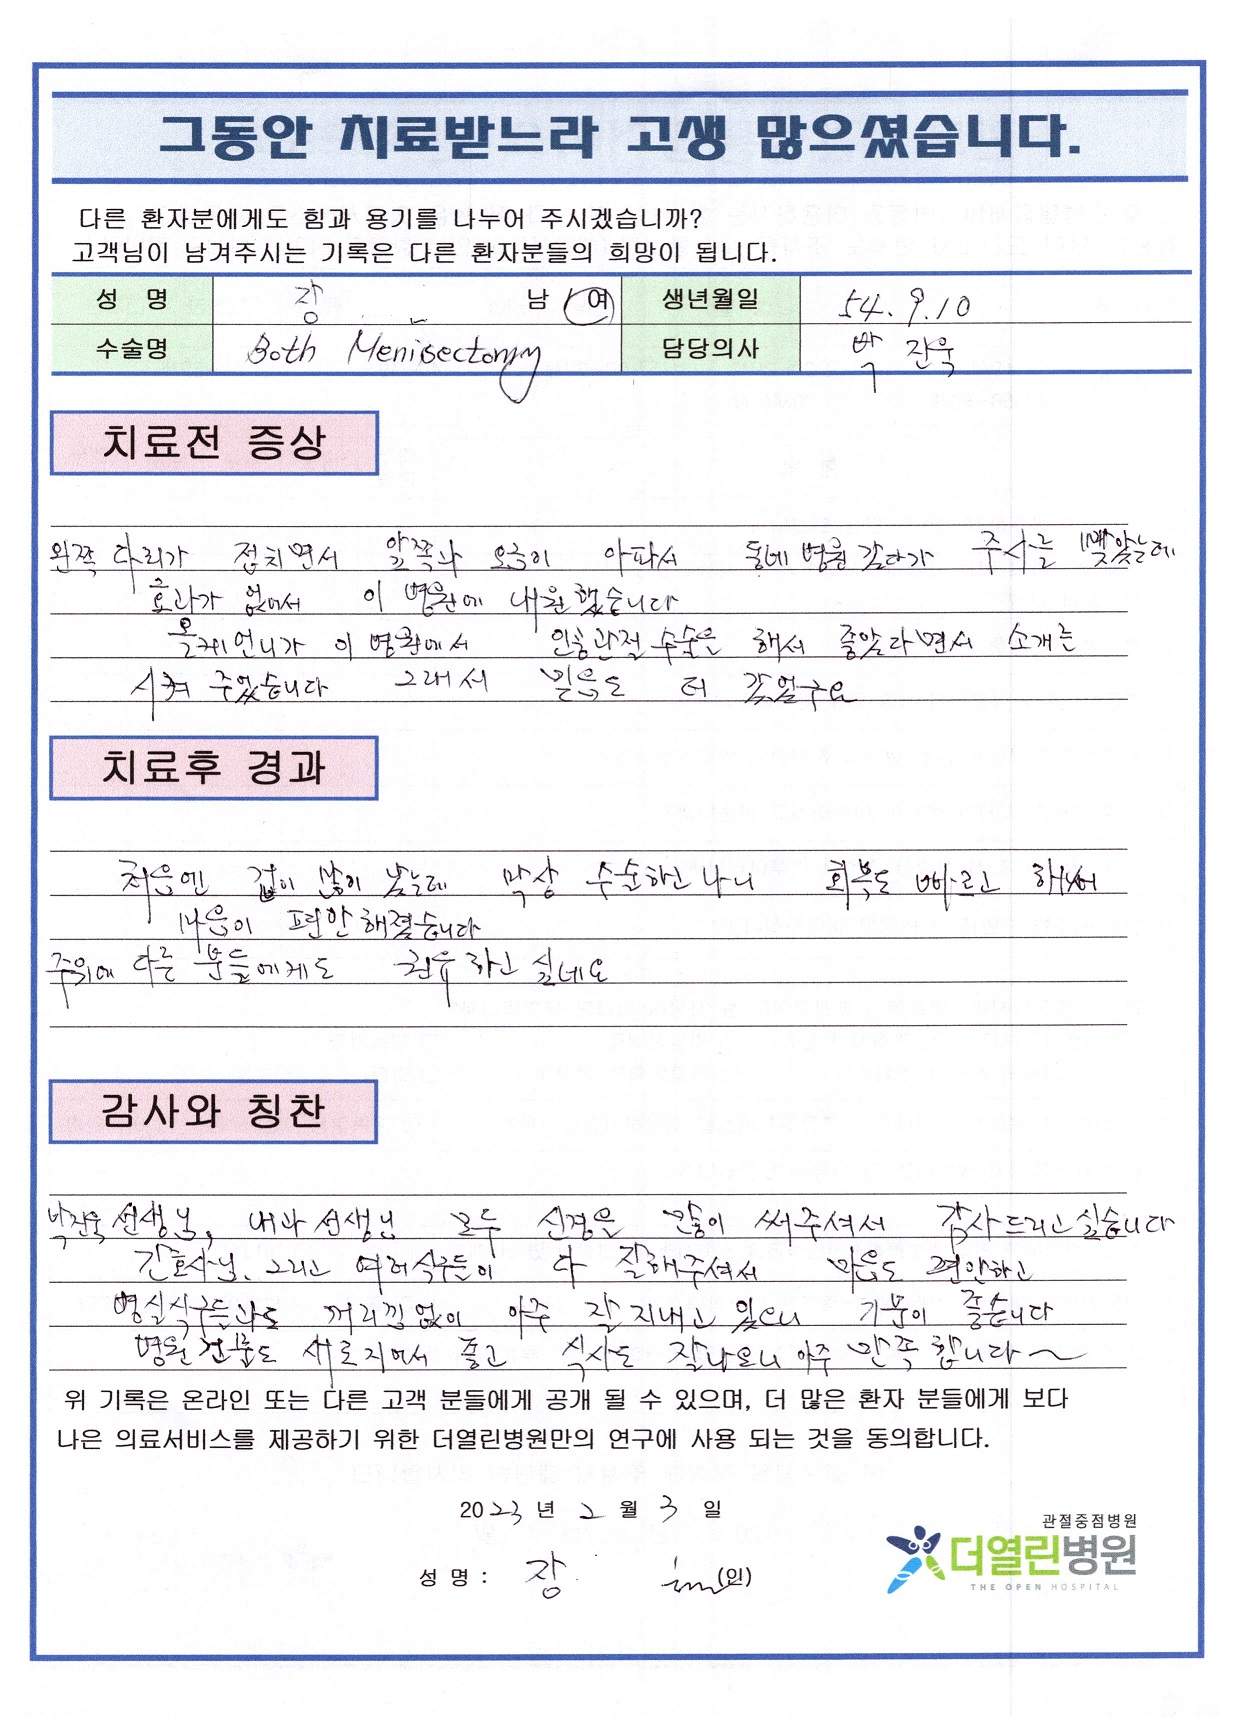 그동안 치료받느라 고생 많으셨습니다.
다른 환자분에게도 힘과 용기를 나누어 주시겠습니까?
고객님이 남겨주시는 기록은 다른 환자분들의 희망이 됩니다.
성 명 장 남 여 생년월일 54. 9. 10
수술명 Both Menisectomy 담당의사 박진욱
치료전 증상
왼쪽 다리가 접치면서 앞쪽과 오금이 아파서 동네 병원 갔다가 주사를 맞았는데
효과가 없어서 이 병원에 내원했습니다
올케언니가 이 병원에서 인공관절 수술을 해서 좋았다라면서 소개를
시켜 주었습니다 그래서 믿음도 더 갔었구요
치료후 경과
처음엔 겁이 많이 났는데 막상 수순하고 나니 회복도 빠르고 하여
마음이 편안해졌습니다
주위에 다른 분들에게도 권유하고 싶네요
감사와 칭찬
박진욱 선생님, 내과 선생님 모두 신경을 많이 써주셔서 감사드리고 싶습니다
간호사님, 그리고 여러식구들이 다 잘해주셔서 마음도 편안하고
병실식구들과도 꺼리낌없이 아주 잘 지내고 있으니 기분이 좋습니다
병원 건물도 새로지어서 좋고 식사도 잘나오니 아주 만족합니다~
위 기록은 온라인 또는 다른 고객 분들에게 공개 될 수 있으며, 더 많은 환자 분들에게 보다
나은 의료서비스를 제공하기 위한 더열린병원만의 연구에 사용 되는 것을 동의합니다.
2023 년 2 월 3 일
관절중점병원
더열린병원
THE OPEN HOSPITAL
성 명 : 장 (인)